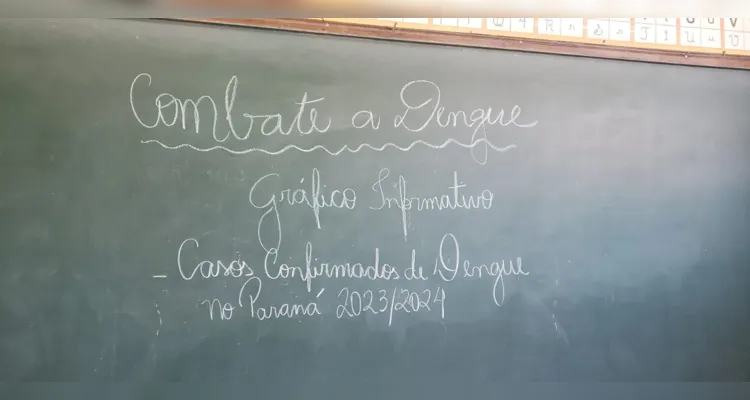 Combate a Dengue
Gráfico Informativo
- Casos Confirmados de Dengue
no Paraná 2023/2024